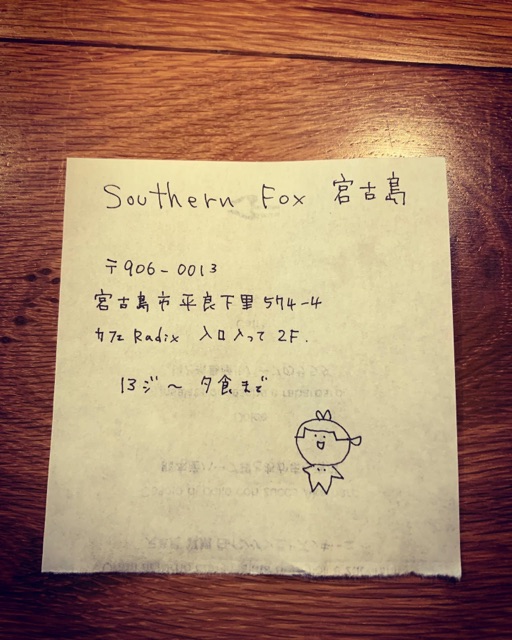 Southern Fox 宮古島
〒906-0013
宮古島市平良下里574-4
カフェ Radix 入口入って 2F.
13ジ〜 夕食まで